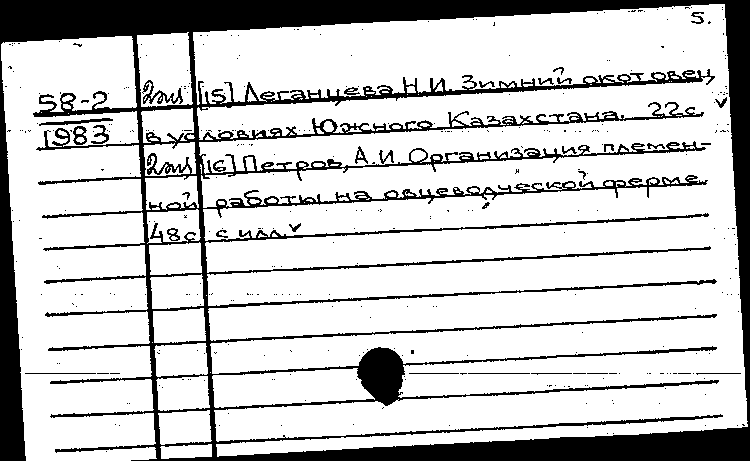 5.
58-2 2экз [15] Леганцева, Н.И. Зимний окот овец
1983 в условиях Южного Казахстана. 22с. ✓
2экз [16] Петров, А.И. Организация племен-
ной работы на овцеводческой ферме.
48с с илл. ✓